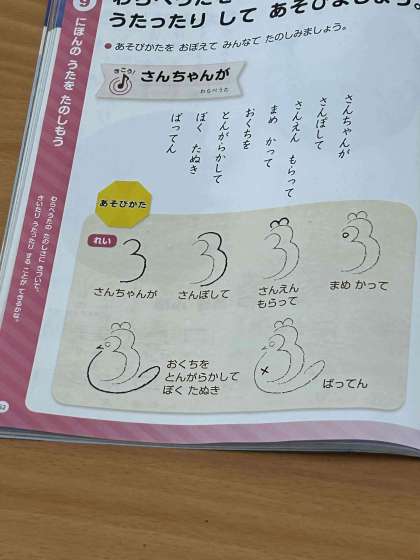 うたったり して あそびましょう。
● あそびかたを おぼえて みんなで たのしみましょう。
きこう♪
さんちゃんが
わらべうた
さんちゃんが
さんぽして
さんえん もらって
まめ かって
おくちを
とんがらかして
ぼく たぬき
ばってん
あそびかた
れい
さんちゃんが
さんぽして
さんえん
もらって
まめ かって
おくちを
とんがらかして
ぼく たぬき
ばってん
9 にほんの うたを たのしもう
わらべうたの たのしさに きづいて、
きいたり うたったり する ことが できるかな。